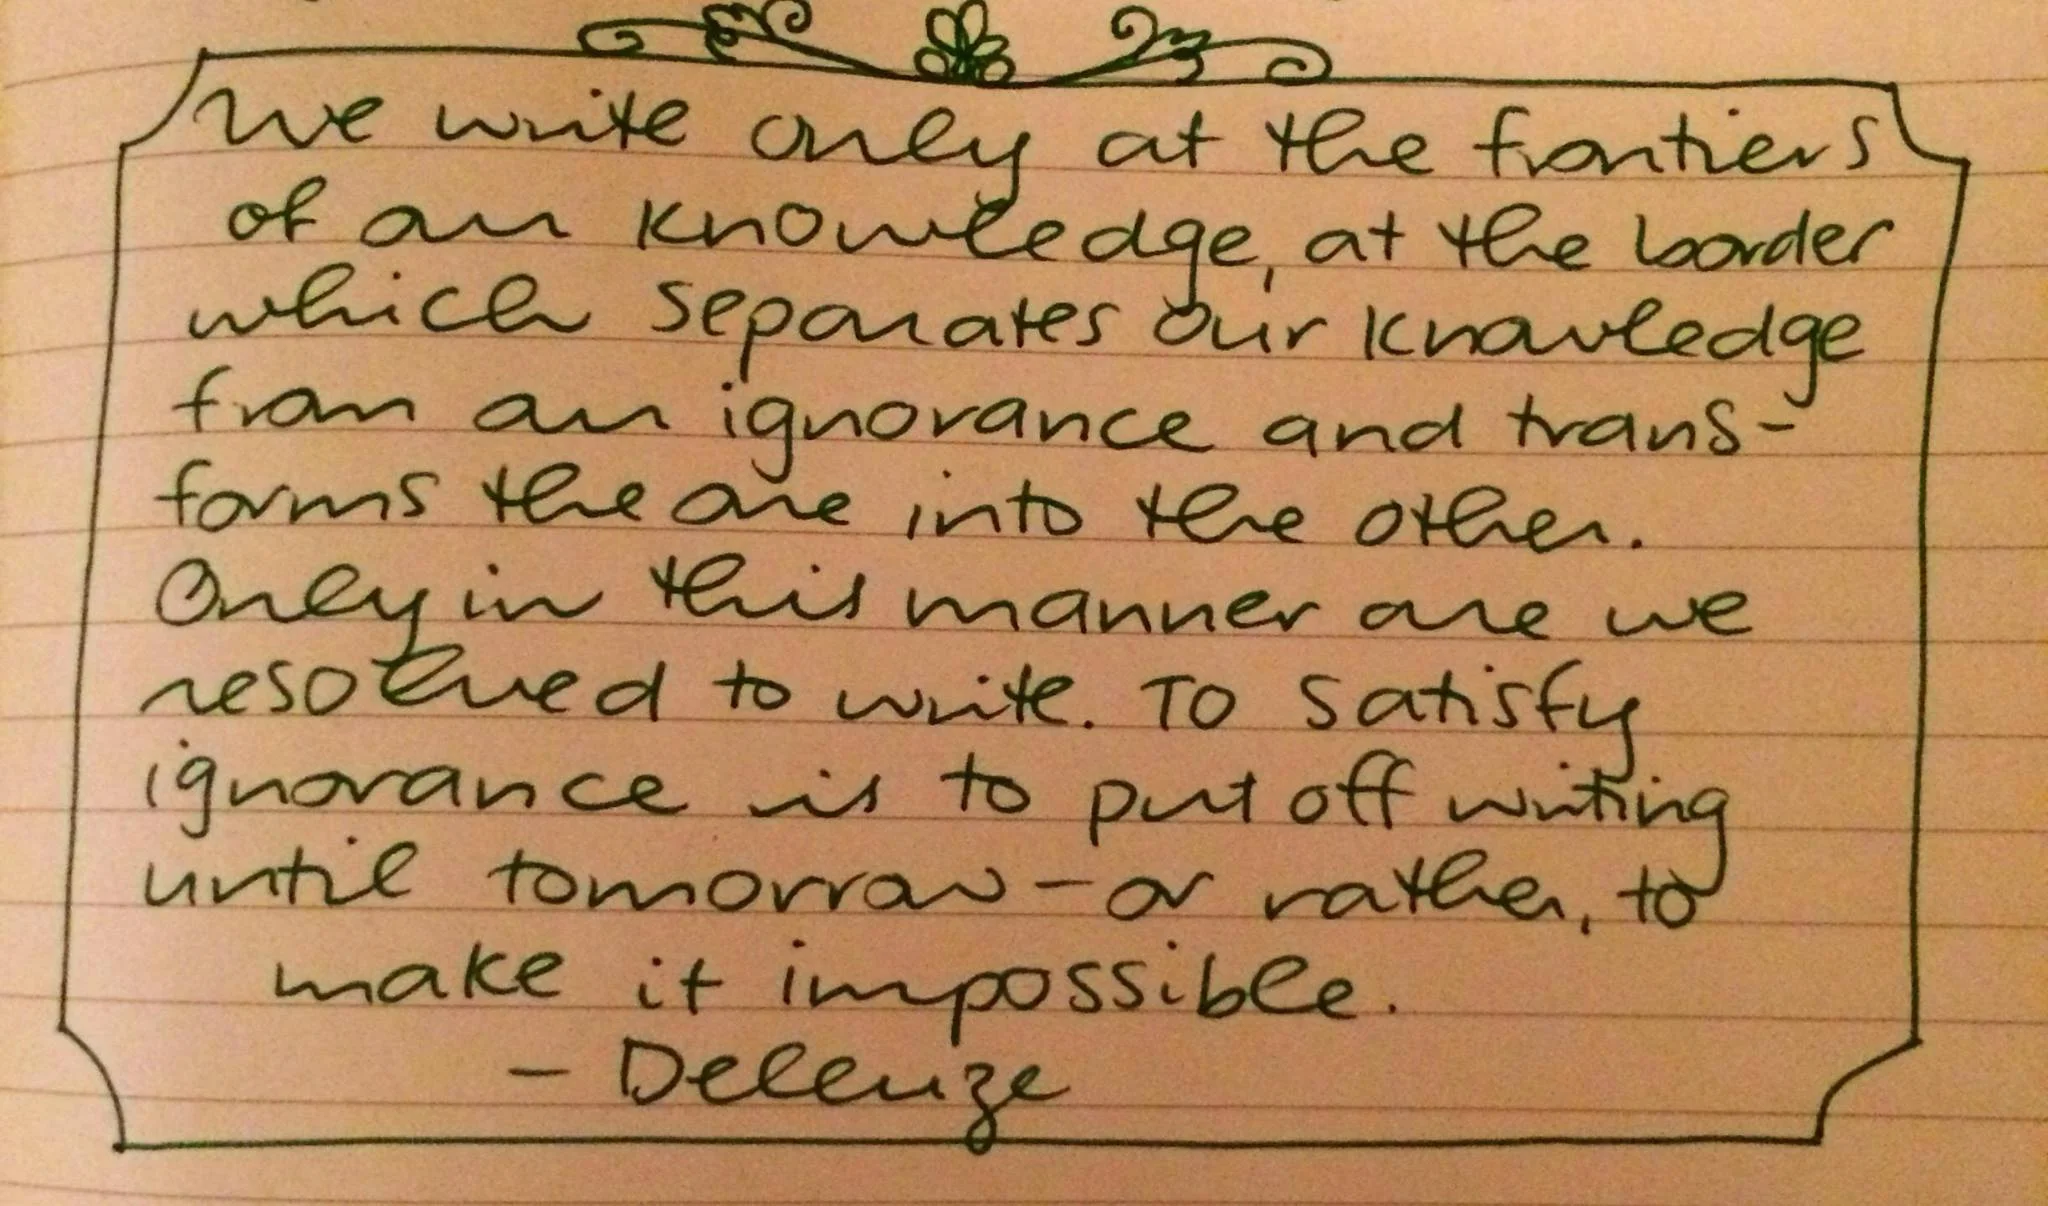 We write only at the frontiers
of our knowledge, at the border
which separates our knowledge
from our ignorance and trans-
forms the one into the other.
Only in this manner are we
resolved to write. To satisfy
ignorance is to put off writing
until tomorrow - or rather, to
make it impossible.
- Deleuze